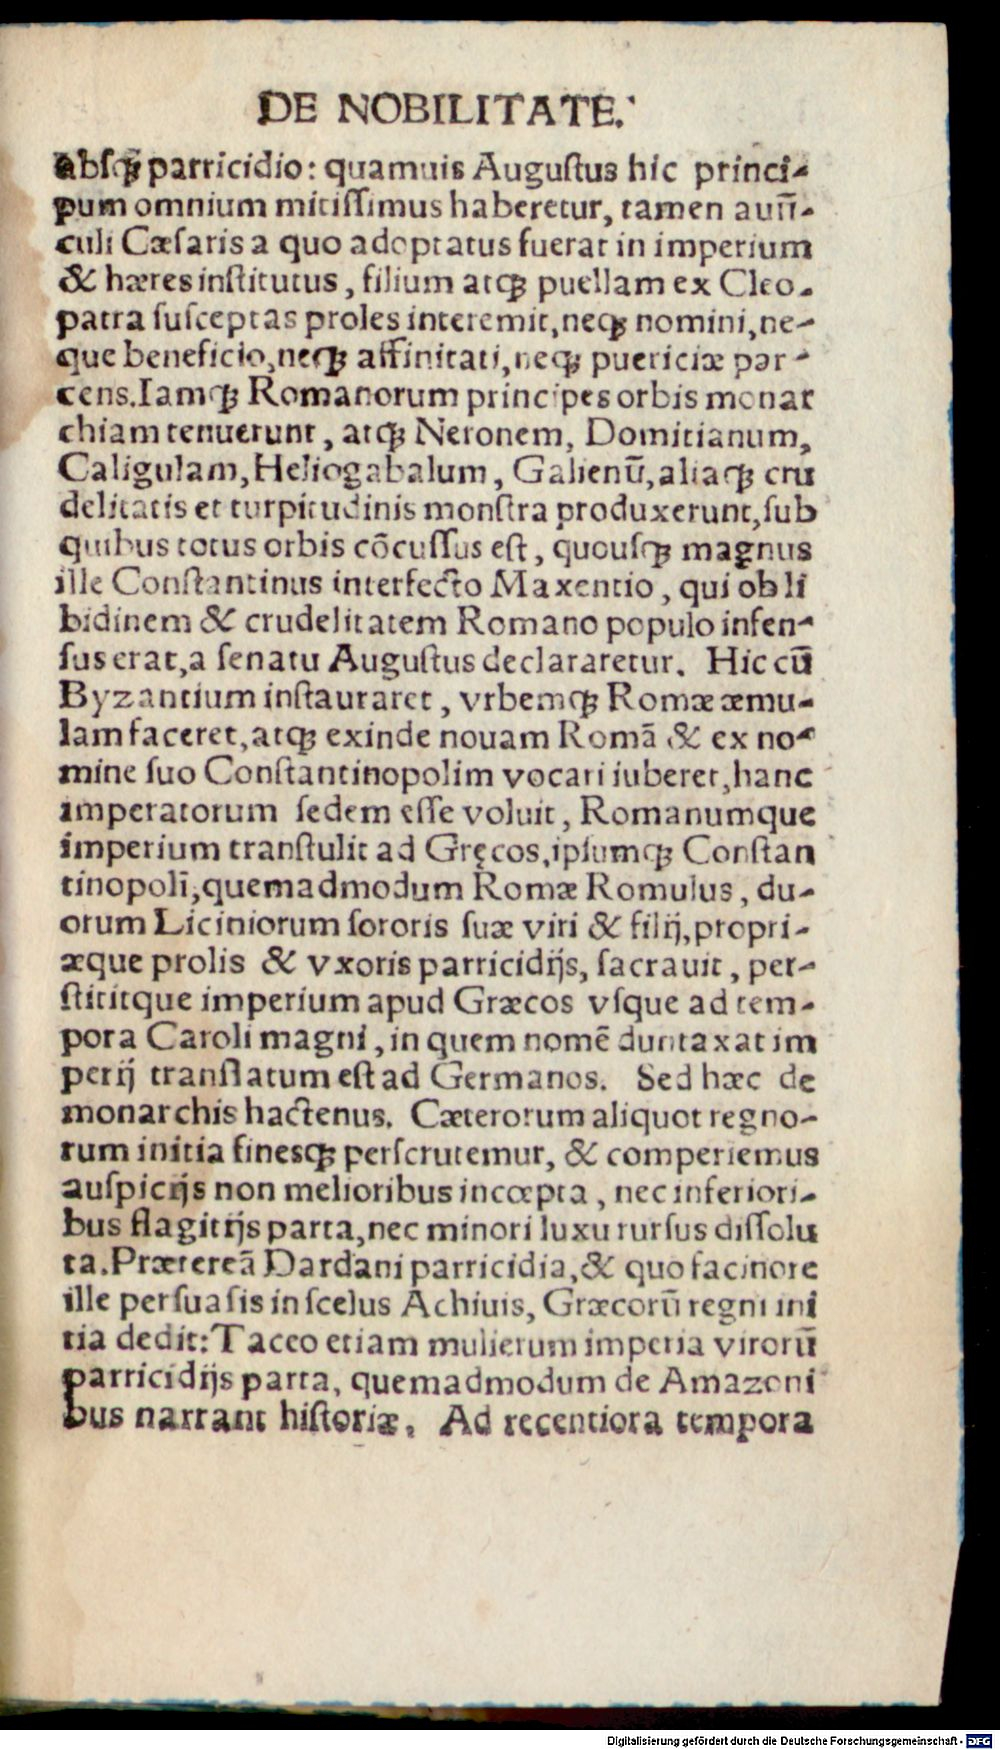 DE NOBILITATE.
absq; parricidio: quamuis Augustus hic princi-
pum omnium mitissimus haberetur, tamen auū-
culi Cæsaris a quo adoptatus fuerat in imperium
& hæres institutus, filium atq; puellam ex Cleo-
patra susceptas proles interemit, neq; nomini, ne-
que beneficio, neq; affinitati, neq; puericiæ par-
cens. Iamq; Romanorum principes orbis monar
chiam tenuerunt, atq; Neronem, Domitianum,
Caligulam, Heliogabalum, Galienū, aliaq; cru
delitatis et turpitudinis monstra produxerunt, sub
quibus totus orbis cōcussus est, quousq; magnus
ille Constantinus interfecto Maxentio, qui ob li
bidinem & crudelitatem Romano populo infen-
sus erat, a senatu Augustus declararetur. Hic cū
Byzantium instauraret, vrbemq; Romæ æmu-
lam faceret, atq; exinde nouam Romā & ex no-
mine suo Constantinopolim vocari iuberet, hanc
imperatorum sedem esse voluit, Romanumque
imperium transtulit ad Gręcos, ipsumq; Constan
tinopolī, quemadmodum Romæ Romulus, du-
orum Liciniorum sororis suæ viri & filij, propri-
æque prolis & vxoris parricidijs, sacrauit, per-
stititque imperium apud Græcos vsque ad tem-
pora Caroli magni, in quem nomē duntaxat im
perij translatum est ad Germanos. Sed hæc de
monarchis hactenus. Cæterorum aliquot regno-
rum initia finesq; perscrutemur, & comperiemus
auspicijs non melioribus incœpta, nec inferiori-
bus flagitijs parta, nec minori luxu rursus dissolu
ta. Prætereā Dardani parricidia, & quo facinore
ille persuasis in scelus Achiuis, Græcorū regni ini
tia dedit: Taceo etiam mulierum imperia virorū
parricidijs parta, quemadmodum de Amazoni
bus narrant historiæ. Ad recentiora tempora
Digitalisierung gefördert durch die Deutsche Forschungsgemeinschaft - DFG